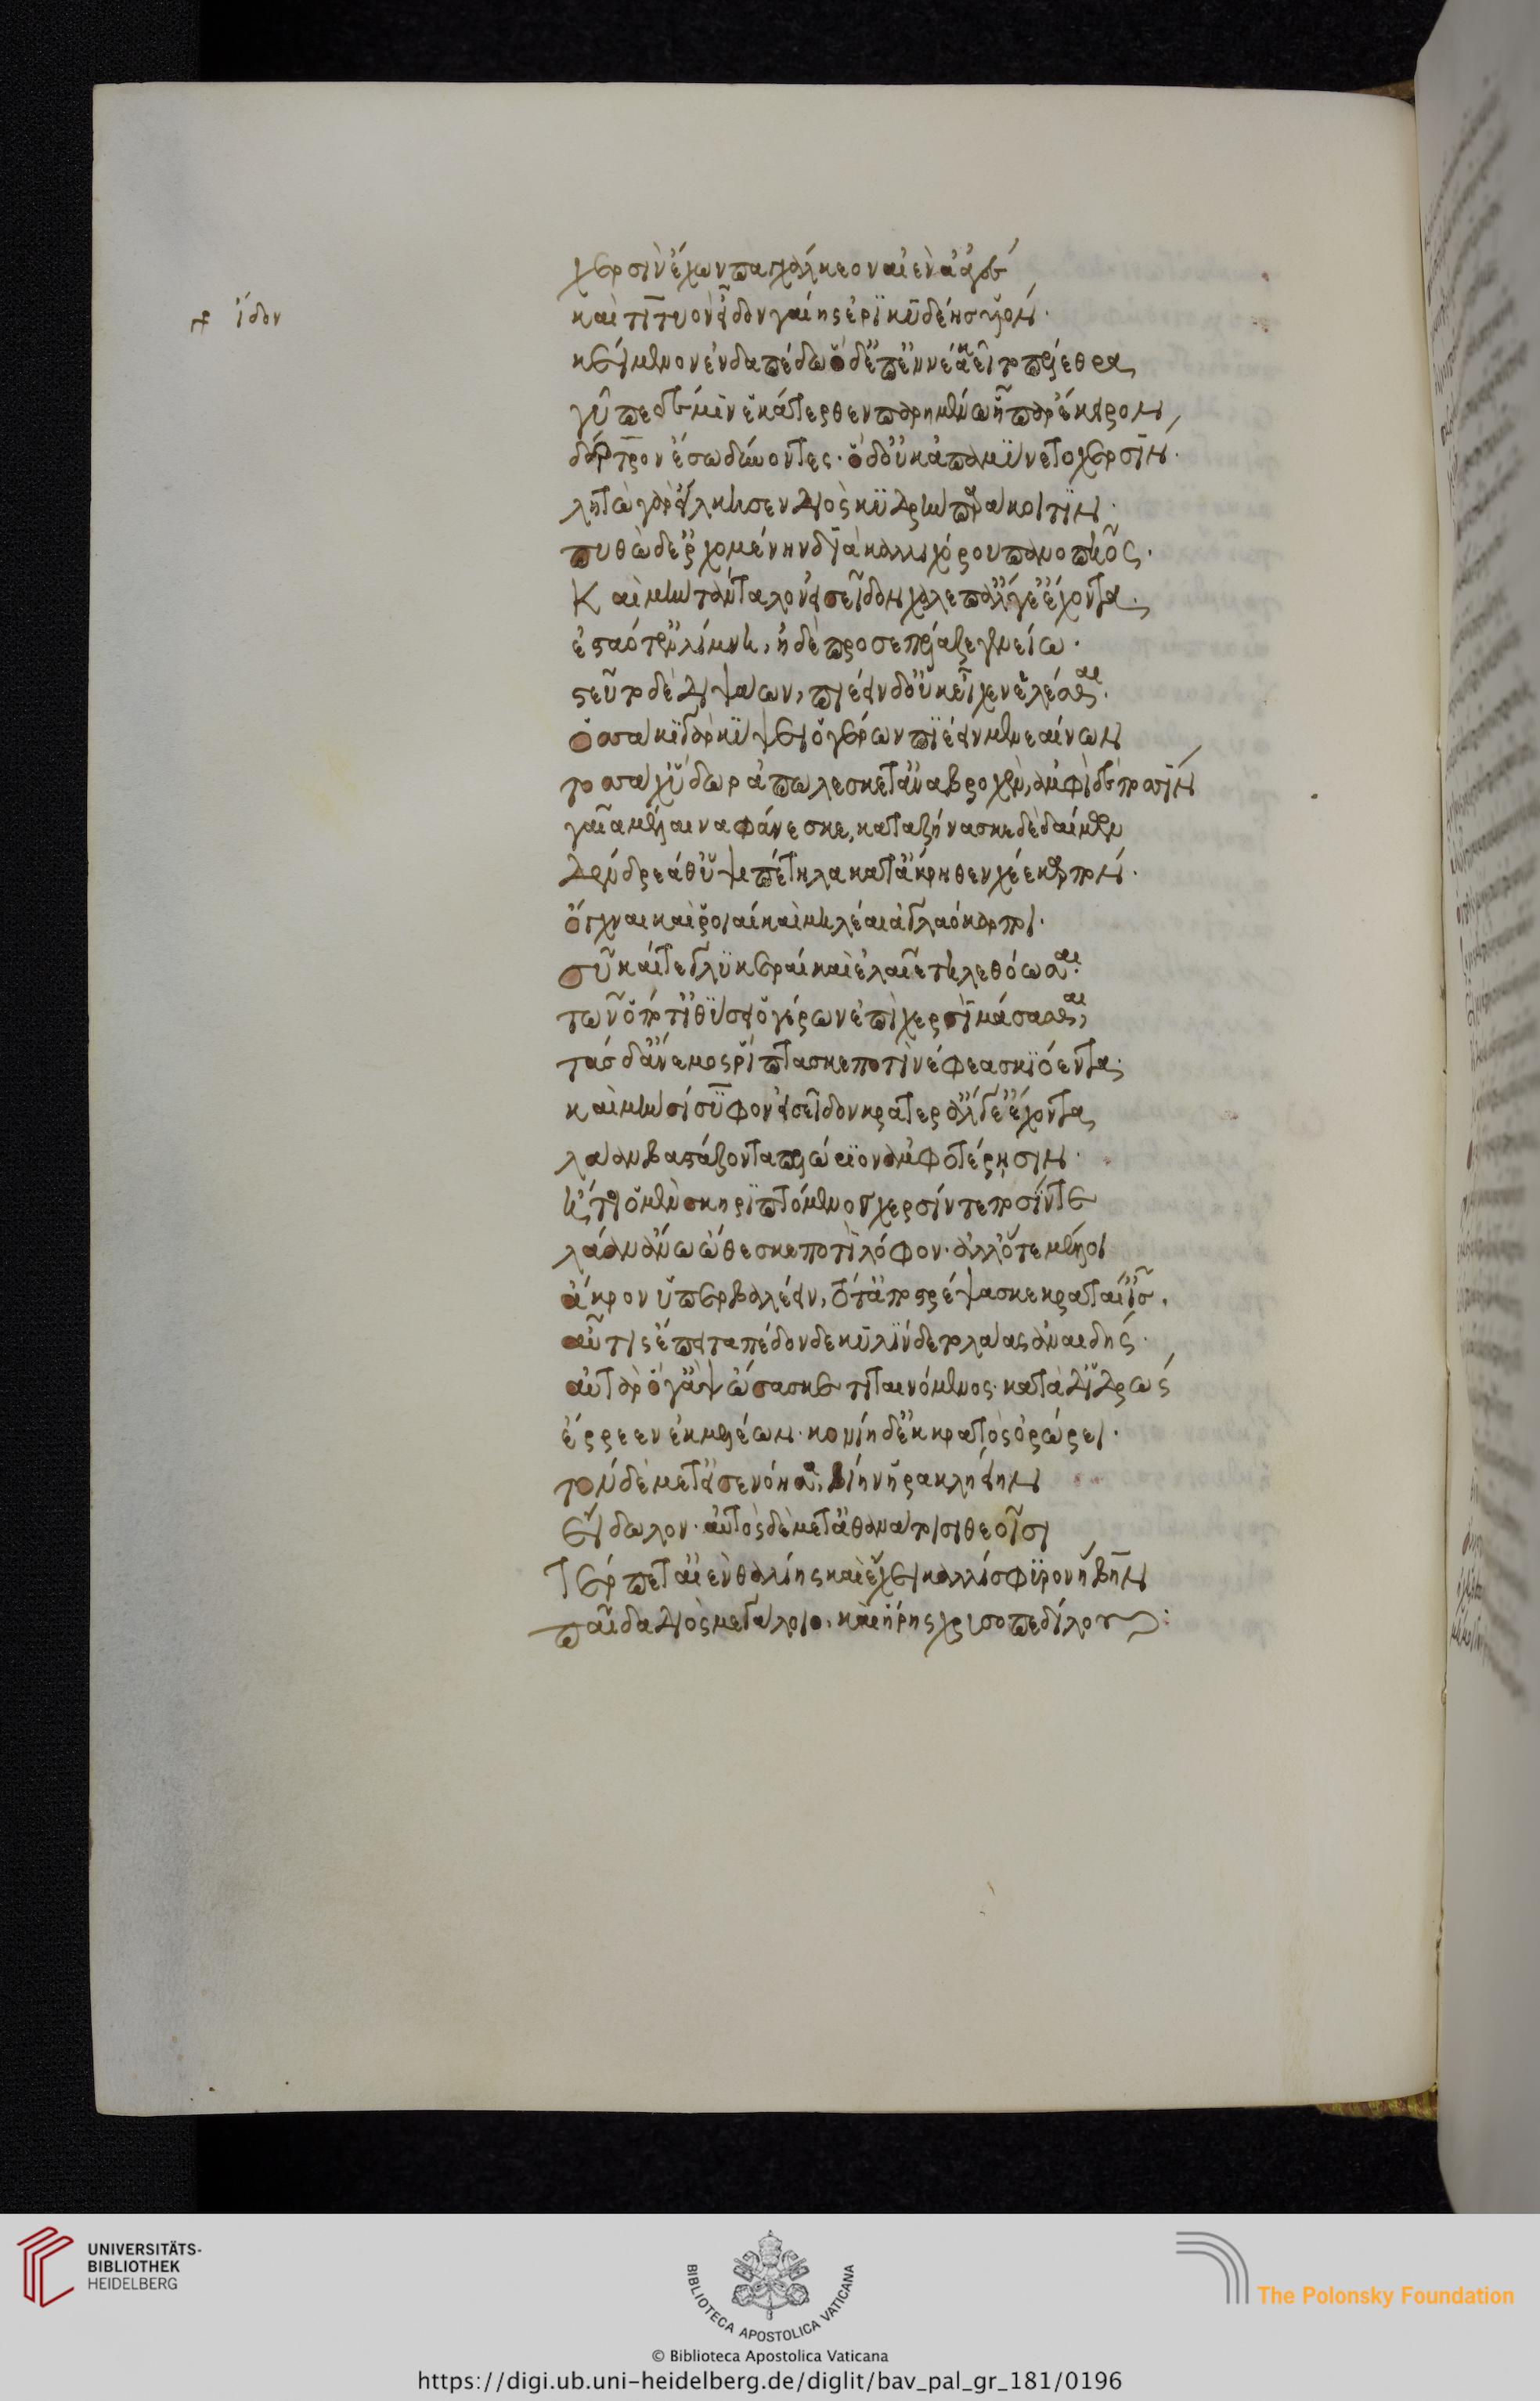 χερσὶν ἔχων παγχάλκεον αἰὲν ἀαγὲς
καὶ τιτυὸν εἶδον γαίης ἐρικυδέησ υἱὸν·
ϯ ἴδον
κείμενον ἐν δαπέδω ὁ δ' ἐπ' ἐννέα κεῖτο πέλεθρα,
γῦπε δέ μιν ἑκάτερθεν παρημένω ἧπαρ ἔκειρον,
δέρτρον ἔσω δύνοντες· ὁ δ' οὐκ ἀπαμύνετο χερσίν·
λητὼ γὰρ εἵλκησεν διὸς κυδρὴν παράκοιτιν·
πυθὼ δ' ἐρχομένην διὰ καλλιχόρου πανοπῆος.
Καὶ μὴν τάνταλον εἰσεῖδον χαλέπ' ἄλγε' ἔχοντα.
ἑσταότ' ἐν λίμνη, ἡ δὲ προσέπλαζε γενείω·
στεῦτο δὲ διψάων, πιέειν δ' οὐκ εἶχεν ἑλέσθαι.
ὁσσάκι γὰρ κύψει' ὁ γέρων πιέειν μενεαίνων
τοσσάχ' ὕδωρ ἀπωλέσκετ' ἀναβροχὲν, ἀμφὶ δὲ ποσσὶν
γαῖα μέλαινα φάνεσκε, καταζήνασκε δὲ δαίμων
δένδρεα θ' ὑψιπέτηλα κατάκρηθεν χέε καρπόν·
ὄγχναι καὶ ῥοιαί καὶ μηλέαι ἀγλαόκαρποι·
συκαῖ τε γλυκεραί καὶ ἐλαῖαι τηλεθόωσαι·
τῶν ὁπότ' ἰθύσει' ὁ γέρων ἐπὶ χερσὶ μάσασθαι,
τάσ δ' ἄνεμος ῥίπτασκε ποτὶ νέφεα σκιόεντα·
καὶ μὴν σίσυφον εἰσεῖδον κρατέρ' ἄλγε' ἔχοντα,
λᾶαν βαστάζοντα πελώριον ἀμφοτέρησιν·
ἤτοι ὁ μὲν σκηριπτόμενος χερσίν τε ποσίν τε
λᾶαν ἄνω ὤθεσκε ποτὶ λόφον· ἀλλ' ὅτε μέλλοι
ἄκρον ὑπερβαλέειν, τότ' ἀποστρέψασκε κραταιῒσ,
αὖτις ἔπειτα πέδονδε κυλίνδετο λᾶας ἀναιδής·
αὐτὰρ ὅγ' ἂψ ὤσασκε τιταινόμενος· κατὰ δ' ἱδρὼς
ἔρρεεν ἐκ μελέων· κονίη δ' ἐκ κρατὸς ὀρώρει·
τοὺ δὲ μετ' εἰσενόησα, βίην ἡρακληείην
εἴδωλον· αὐτὸς δὲ μετ' ἀθανάτοισι θεοῖσι
Τέρπεται ἐν θαλίης καὶ ἔχει καλλίσφυρον ἥβην
παῖδα διὸς μεγάλοιο, καὶ ἥρης χρυσοπεδίλου:
UNIVERSITÄTS-
BIBLIOTHEK
HEIDELBERG
BIBLIOTECA APOSTOLICA VATICANA
The Polonsky Foundation
© Biblioteca Apostolica Vaticana
https://digi.ub.uni-heidelberg.de/diglit/bav_pal_gr_181/0196